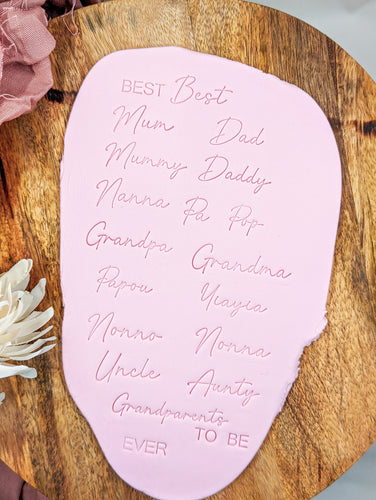 BEST Best
Mum Dad
Mummy Daddy
Nanna Pa Pop
Grandpa Grandma
Papou Yiayia
Nonno Nonna
Uncle Aunty
Grandparents
TO BE
EVER